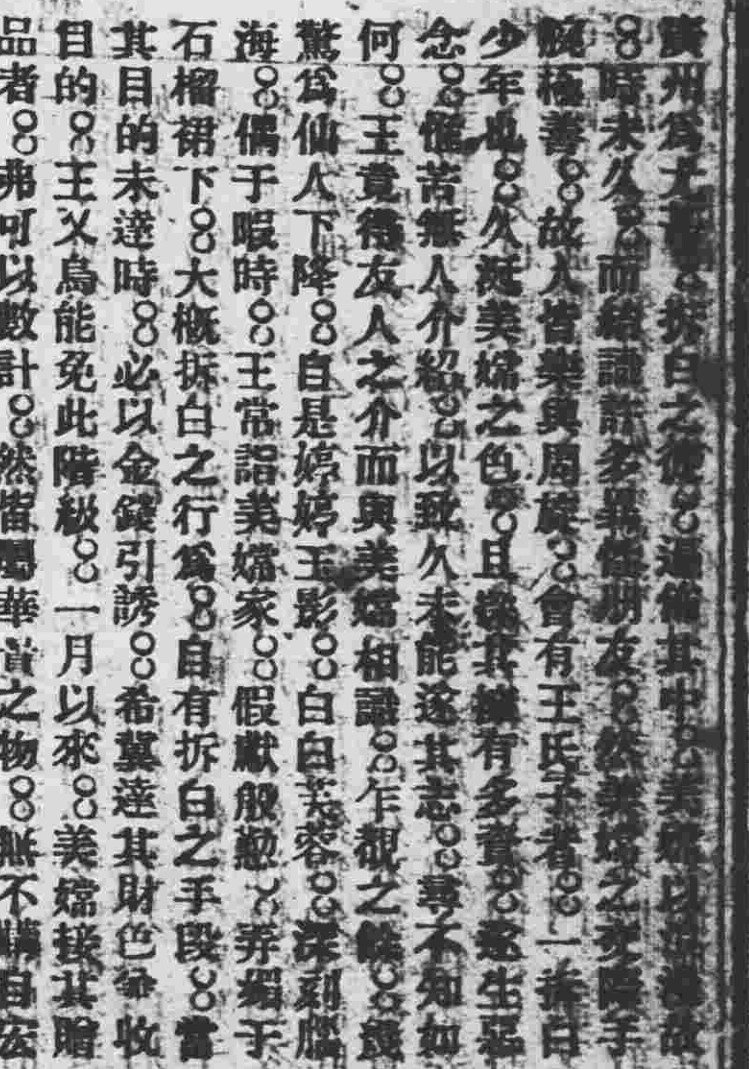 廣州為大○○拆白之徒○○遍佈其中○○美嬌以
○○時未久○○而結識許多異性朋友○○然美嬌之交際手
腕極善○○故人皆樂與周旋○○會有王氏子者○○一拆白
少年也○○久涎美嬌之色○○且探其擁有多資○○遂生惡
念○○惟苦無人介紹○○以致久未能遂其志○○尋不知如
何○○王竟得友人之介而與美嬌相識○○乍覩之餘○○幾
驚為仙人下降○○自是娉娉玉影○○白白芙蓉○○深刻腦
海○○偶于暇時○○王常詣美嬌家○○假獻殷懃○○弄媚于
石榴裙下○○大概拆白之行為○○自有拆白之手段○○當
其目的未達時○○必以金錢引誘○○希冀達其財色兼收
目的○○王乂烏能免此階級○○一月以來○○美嬌接其贈
品者○○弗可以數計○○然皆屬華貴之物○○無不